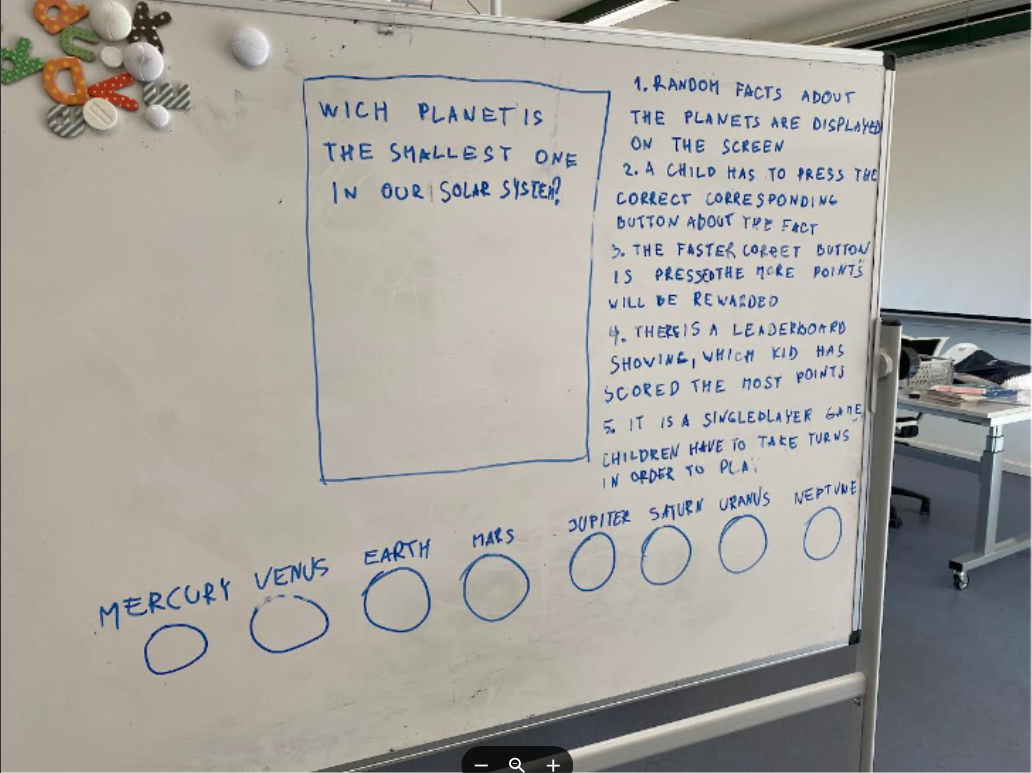 WICH PLANET IS
THE SMALLEST ONE
IN OUR SOLAR SYSTEM?
1. RANDOM FACTS ABOUT
THE PLANETS ARE DISPLAYED
ON THE SCREEN
2. A CHILD HAS TO PRESS THE
CORRECT CORRESPONDING
BUTTON ABOUT THE FACT
3. THE FASTER CORRET BUTTON
IS PRESSED THE MORE POINTS
WILL BE REWARDED
4. THERE IS A LEADERBOARD
SHOWING, WHICH KID HAS
SCORED THE MOST POINTS
5. IT IS A SINGLEPLAYER GAME,
CHILDREN HAVE TO TAKE TURNS
IN ORDER TO PLAY
MERCURY VENUS EARTH MARS JUPITER SATURN URANUS NEPTUNE